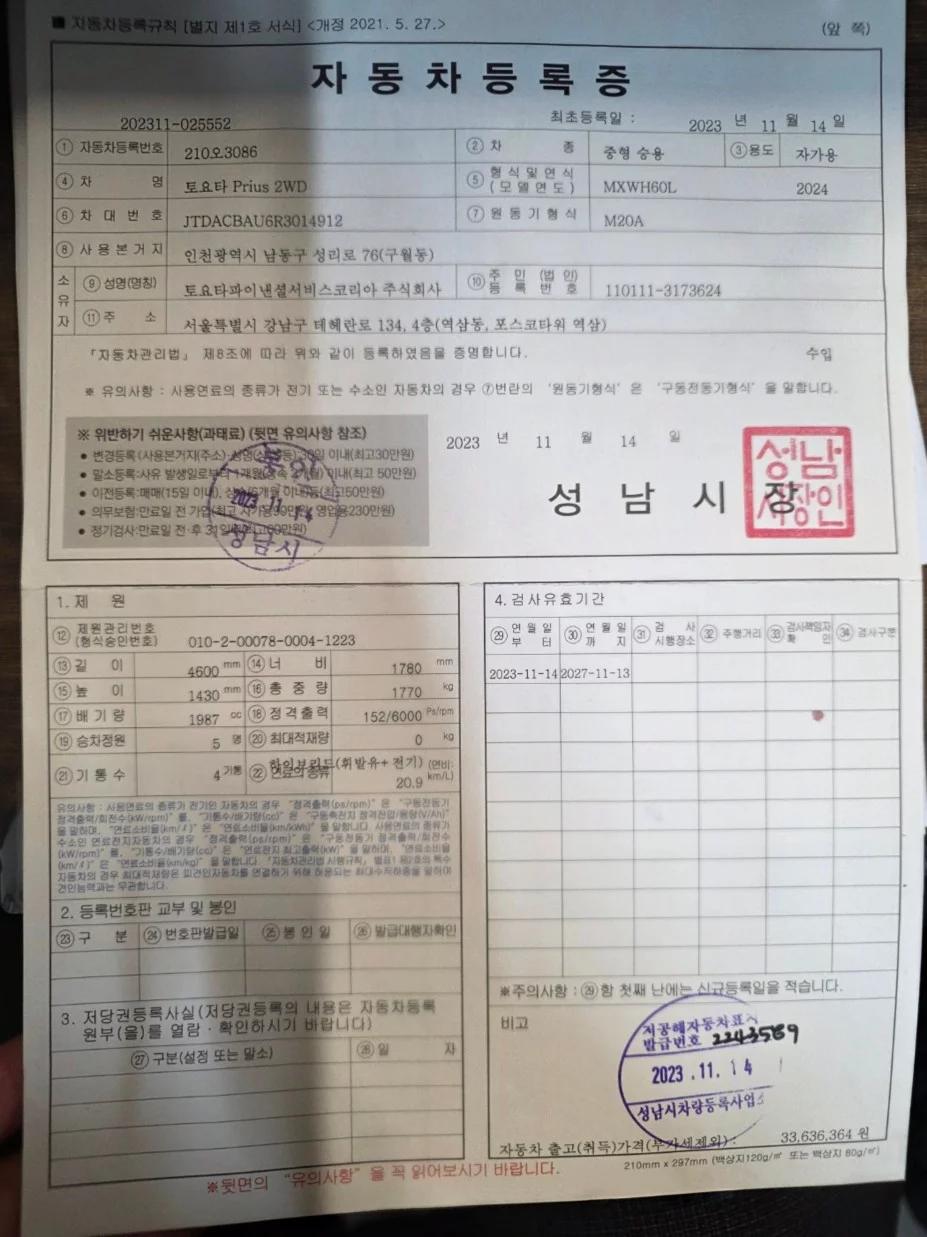 ■ 자동차등록규칙 [별지 제1호 서식] <개정 2021. 5. 27.> (앞 쪽)
자동차등록증
202311-025552 최초등록일 : 2023 년 11 월 14 일
① 자동차등록번호 210오3086 ② 차 종 중형 승용 ③ 용도 자가용
④ 차 명 토요타 Prius 2WD ⑤ 형식 및 연식 (모델연도) MXWH60L 2024
⑥ 차 대 번 호 JTDACBAU6R3014912 ⑦ 원동기형식 M20A
⑧ 사용본거지 인천광역시 남동구 성리로 76(구월동)
소유자 ⑨ 성명(명칭) 토요타파이낸셜서비스코리아 주식회사 ⑩ 주민(법인)등록번호 110111-3173624
⑪ 주 소 서울특별시 강남구 테헤란로 134, 4층(역삼동, 포스코타워 역삼)
「자동차관리법」 제8조에 따라 위와 같이 등록하였음을 증명합니다. 수입
※ 유의사항 : 사용연료의 종류가 전기 또는 수소인 자동차의 경우 ⑦번란의 '원동기형식' 은 '구동전동기형식' 을 말합니다.
※ 위반하기 쉬운사항(과태료) (뒷면 유의사항 참조)
● 변경등록(사용본거지(주소)·성명(상호)등):30일 이내(최고30만원)
● 말소등록:사유 발생일로부터 1개월(상속 3개월) 이내(최고 50만원)
● 이전등록:매매(15일 이내), 상속/6개월 이내)등(최고50만원)
● 의무보험:만료일 전 가입(최고 자가용90만원, 영업용230만원)
● 정기검사:만료일 전·후 31일(최고60만원)
2023.11.14
성남시
2023 년 11 월 14 일
성 남 시 장
성남시장인
1. 제 원
⑫ 제원관리번호 (형식승인번호) 010-2-00078-0004-1223
⑬ 길 이 4600 mm ⑭ 너 비 1780 mm
⑮ 높 이 1430 mm ⑯ 총 중 량 1770 kg
⑰ 배 기 량 1987 cc ⑱ 정격출력 152/6000 Ps/rpm
⑲ 승차정원 5 명 ⑳ 최대적재량 0 kg
㉑ 기 통 수 4 기통 ㉒ 연료의 종류 하이브리드(휘발유+ 전기) (연비: 20.9 km/L)
유의사항 : 사용연료의 종류가 전기인 자동차의 경우 "정격출력(ps/rpm)" 은 "구동전동기
정격출력/회전수(kW/rpm)" 를, "기통수/배기량(cc)" 은 "구동축전지 정격전압/용량(V/Ah)"
을 말하며, "연료소비율(km/ℓ)" 은 "연료소비율(km/kWh)" 을 말합니다. 사용연료의 종류가
수소인 연료전지자동차의 경우 "정격출력(ps/rpm)" 은 "구동전동기 정격출력/회전수
(kW/rpm)" 를, "기통수/배기량(cc)" 은 "연료전지 최고출력(kW)" 을 말하며, "연료소비율
(km/ℓ)" 은 "연료소비율(km/kg)" 을 말합니다. 「자동차관리법 시행규칙」 별표1 제2호의 특수
자동차의 경우 최대적재량은 피견인자동차를 연결하기 위해 허용되는 최대수직하중을 말하며
견인능력과는 무관합니다.
2. 등록번호판 교부 및 봉인
㉓ 구 분 ㉔ 번호판발급일 ㉕ 봉 인 일 ㉖ 발급대행자확인
3. 저당권등록사실(저당권등록의 내용은 자동차등록
원부(을)를 열람 · 확인하시기 바랍니다)
㉗ 구분(설정 또는 말소) ㉘ 일 자
4. 검사유효기간
㉙ 연월일부터 ㉚ 연월일까지 ㉛ 검사시행장소 ㉜ 주행거리 ㉝ 검사책임자확인 ㉞ 검사구분
2023-11-14 2027-11-13
※주의사항 : ㉙항 첫째 난에는 신규등록일을 적습니다.
비고
저공해자동차표
발급번호 2243589
2023 . 11. 14
성남시차량등록사업소
자동차 출고(취득)가격(부가세제외) : 33,636,364 원
210mm x 297mm (백상지120g/㎡ 또는 백상지 80g/㎡)
※뒷면의 "유의사항" 을 꼭 읽어보시기 바랍니다.